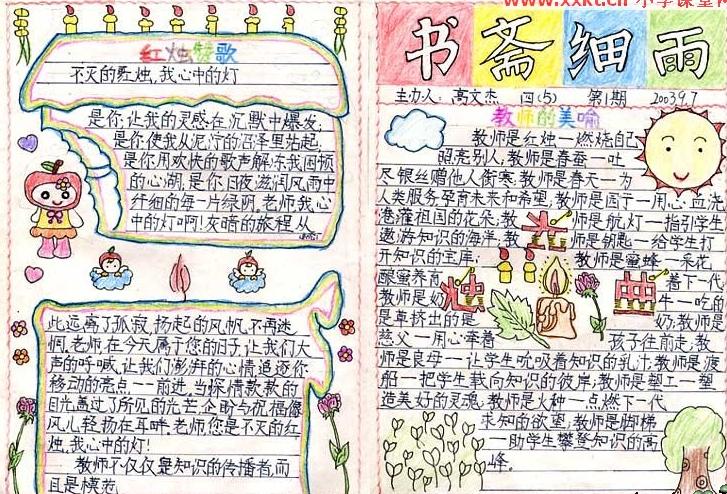 红烛赞歌
不灭的红烛,我心中的灯
是你,让我的灵感在沉默中爆发;
是你,使我从泥泞的沼泽里站起,
是你,用欢快的歌声解冻我困顿
的心湖,是你,日夜滋润风雨中
纤细的每一片绿阴。老师我心
中的灯啊!灰暗的旅程从
此远离了孤寂,扬起的风帆,不再迷
惘。老师,在今天属于您的日子,让我们大
声的呼喊,让我们澎湃的心情追逐你
移动的亮点——前进。当深情款款的
目光盖过了所见的光芒,企盼与祝福像
风儿轻扬在耳畔,老师您是不灭的红
烛。我心中的灯!
教师不仅仅是知识的传播者,而
且是模范
www.xxkt.cn 小学课堂网
书斋细雨
主办人:高文杰 四(5) 第1期 2003.9.7
教师的美喻
教师是红烛一燃烧自己
照亮别人,教师是春蚕一吐
尽银丝赠他人御寒;教师是春天一为
人类服务孕育未来和希望,教师是园丁一用心血浇
港灌祖国的花朵;教师是航灯一指引学生
遨游知识的海洋;教师是钥匙一给学生打
开知识的宝库;教师是蜜蜂一采花
酿蜜养育着下一代
教师是奶牛一吃的
是草挤出的是奶;教师是
慈父一用心牵着孩子往前走,教
师是良母一让学生吮吸着知识的乳汁;教师是渡
船一把学生载向知识的彼岸;教师是塑工一塑
造美好的灵魂,教师是火种一点燃下一代
求知的欲望;教师是脚梯
一助学生攀登知识的高
峰。
烛
典